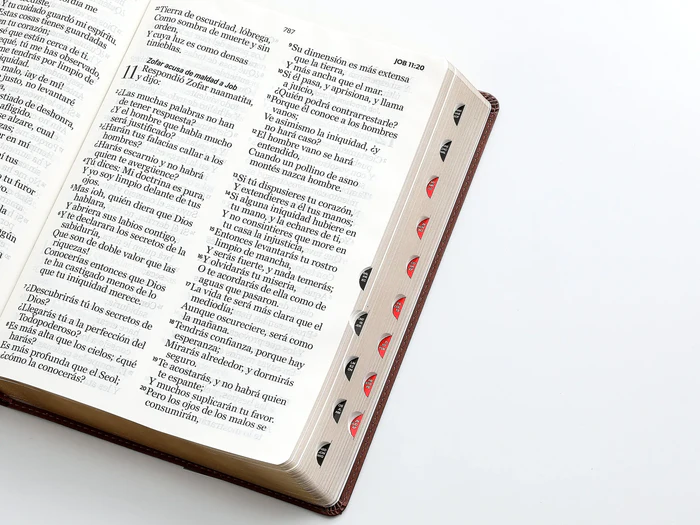 787
JOB 11:20
Y tu cuidado guardó mi espíritu.
Estas cosas tienes guardadas
en tu corazón;
que están cerca de ti.
tú me has observado,
me tendrás por limpio de
malo, ¡ay de mí!
justo, no levantaré
de deshonra,
afligido.
se alzare, cual
en mí
tu furor
22 Tierra de oscuridad, lóbrega,
Como sombra de muerte y sin
orden,
Y cuya luz es como densas
tinieblas.
Zofar acusa de maldad a Job
11 Respondió Zofar naamatita,
y dijo:
2 ¿Las muchas palabras no han
de tener respuesta?
¿Y el hombre que habla mucho
será justificado?
3 ¿Harán tus falacias callar a los
hombres?
¿Harás escarnio y no habrá
quien te avergüence?
4 Tú dices: Mi doctrina es pura,
Y yo soy limpio delante de tus
ojos.
5 Mas ¡oh, quién diera que Dios
hablara,
Y abriera sus labios contigo,
6 Y te declarara los secretos de la
sabiduría,
Que son de doble valor que las
riquezas!
Conocerías entonces que Dios
te ha castigado menos de lo
que tu iniquidad merece.
7 ¿Descubrirás tú los secretos de
Dios?
¿Llegarás tú a la perfección del
Todopoderoso?
8 Es más alta que los cielos; ¿qué
harás?
Es más profunda que el Seol;
¿cómo la conocerás?
9 Su dimensión es más extensa
que la tierra,
Y más ancha que el mar.
10 Si él pasa, y aprisiona, y llama
a juicio,
¿Quién podrá contrarrestarle?
11 Porque él conoce a los hombres
vanos;
Ve asimismo la iniquidad, ¿y
no hará caso?
12 El hombre vano se hará
entendido,
Cuando un pollino de asno
montés nazca hombre.
13 Si tú dispusieres tu corazón,
Y extendieres a él tus manos;
14 Si alguna iniquidad hubiere en
tu mano, y la echares de ti,
Y no consintieres que more en
tu casa la injusticia,
15 Entonces levantarás tu rostro
limpio de mancha,
Y serás fuerte, y nada temerás;
16 Y olvidarás tu miseria,
O te acordarás de ella como de
aguas que pasaron.
17 La vida te será más clara que el
mediodía;
Aunque oscureciere, será como
la mañana.
18 Tendrás confianza, porque hay
esperanza;
Mirarás alrededor, y dormirás
seguro.
19 Te acostarás, y no habrá quien
te espante;
Y muchos suplicarán tu favor.
20 Pero los ojos de los malos se
consumirán,